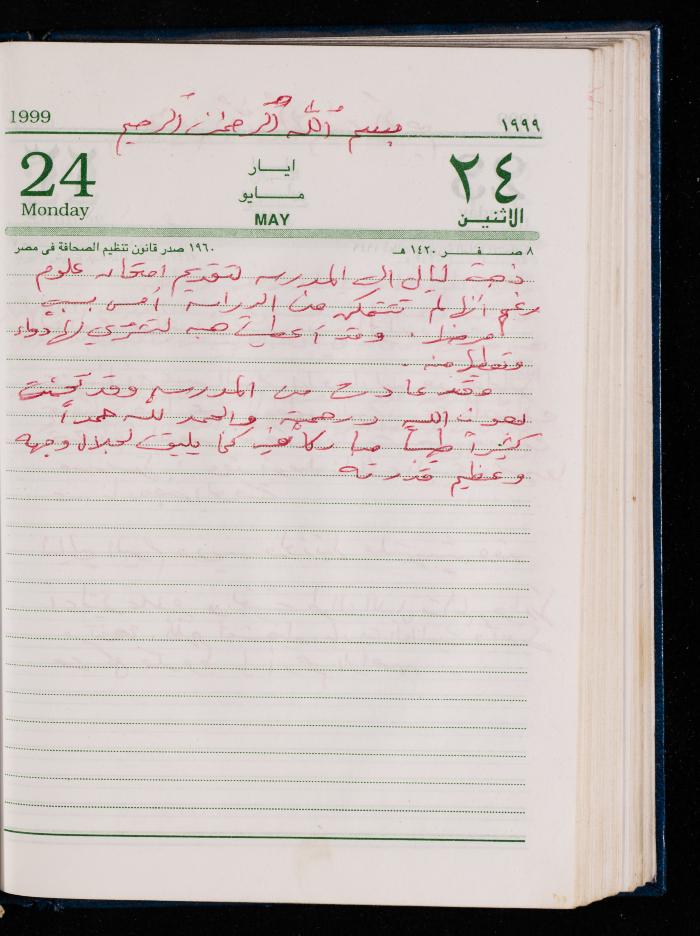 1999 بسم الله الرحمن الرحيم ١٩٩٩
24 ايار ٢٤
Monday مايو الاثنين
MAY
٨ صفر ١٤٢٠ هـ ١٩٦٠ صدر قانون تنظيم الصحافة فى مصر
ذهبت ليال الى المدرسه لتقديم امتحان علوم
رغم انها لم تتمكن من الدراسة أمس بسبب
مرضها. وقد أعطيت هبه لتشتري لها دواء
وقد عادت من المدرسه وقد نجحت
بعون الله ورحمته والحمد لله حمداً
كثيراً طيباً مباركاً فيه كما يليق لجلال وجهه
وعظيم قدرته